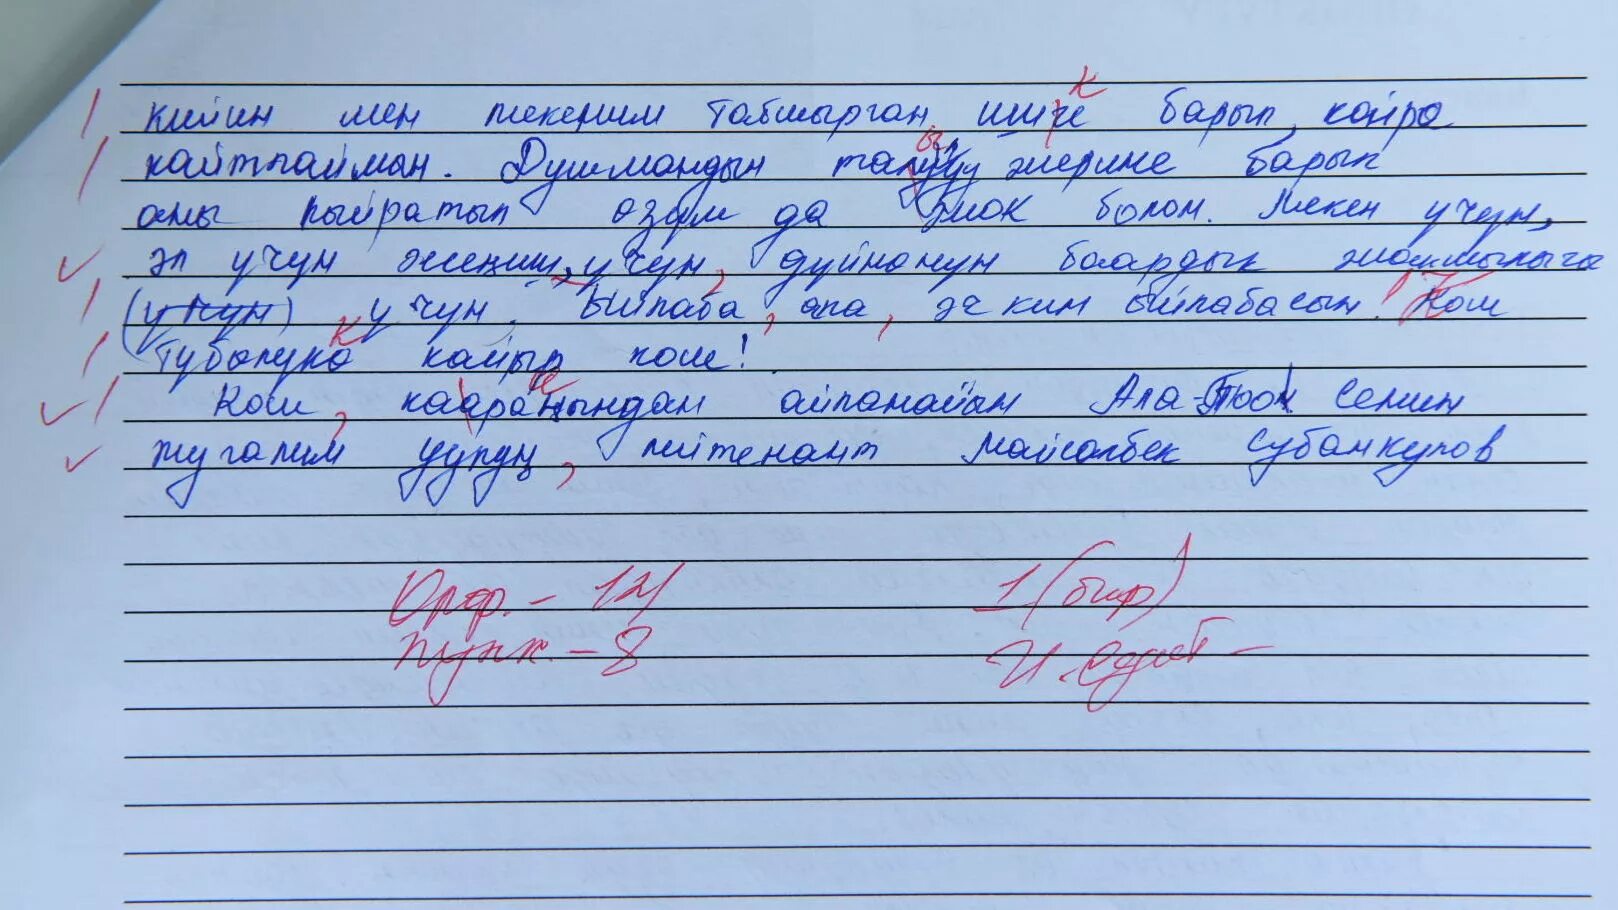 кийин мен мекеним тобшырган ишке барып, кайра
кайтпаймын. Душмандын талуу жерине барып
аны кыйратып өзүм да жок болом. Мекен үчүн,
эл үчүн жеңиш, үчүн, дүйнөнүн баардык жакшылыгы
(үчүн) үчүн. Ыйлаба, апа, эч ким ыйлабасын! Кош
Түбөлүкө кайыр кош!
Кош, караанындан айланайын Ала-Тоо! Сенин
мугалим уулуң, лейтенант Майсалбек Субанкулов
Орф. - 12/ 1 (бир)
Пунк. - 8